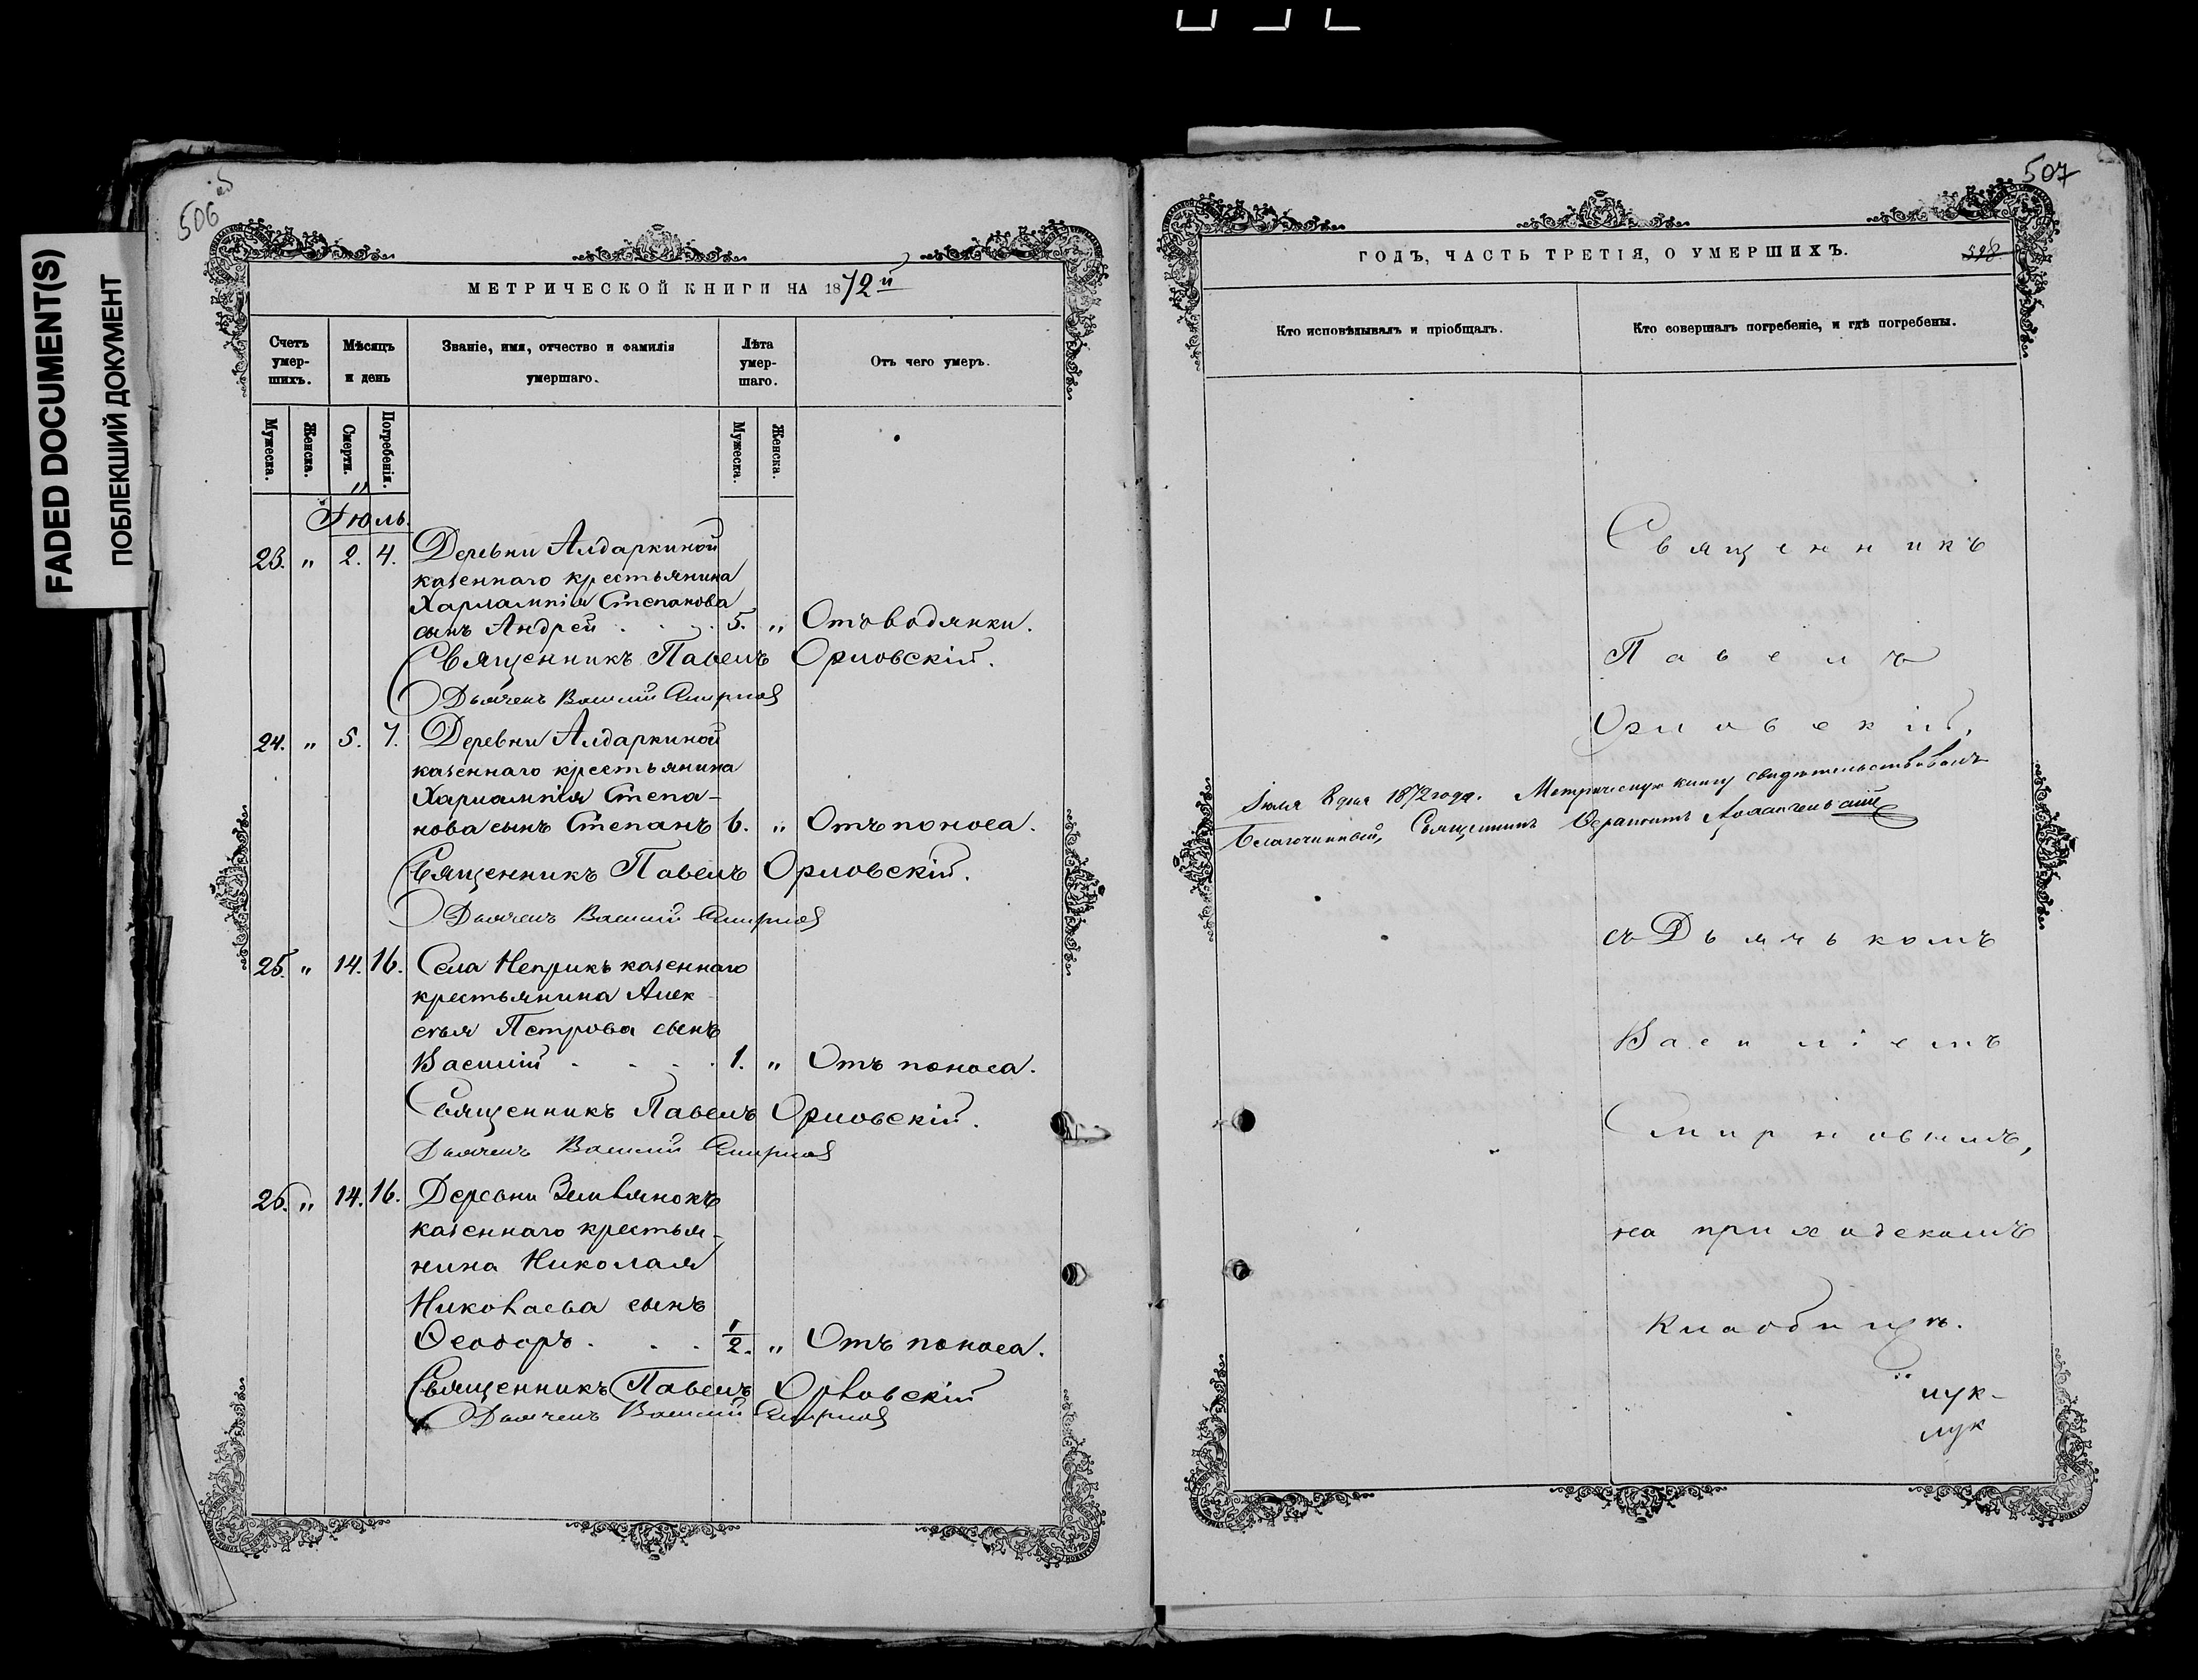 FADED DOCUMENT(S)
ПОБЛЕКШИЙ ДОКУМЕНТ
506
МЕТРИЧЕСКОЙ КНИГИ НА 1872й
Счетъ умер-шихъ.
Мѣсяцъ и день
Званіе, имя, отчество и фамилія умершаго.
Лѣта умер-шаго.
Отъ чего умеръ.
Мужеска. Женска. Смерти. Погребенія. Мужеска. Женска.
Іюль.
23. „ 2. 4. Деревни Алдаркиной
казеннаго крестьянина
Харлампія Степанова
сынъ Андрей . . . 5. „ Отъ водянки.
Священникъ Павелъ Орловскій.
Дьячекъ Василій Смирнов
24. „ 5. 7. Деревни Алдаркиной
казеннаго крестьянина
Харлампія Степа-
нова сынъ Степанъ 6. „ Отъ поноса.
Священникъ Павелъ Орловскій.
Дьячекъ Василій Смирнов
25. „ 14. 16. Села Неприкъ казеннаго
крестьянина Алек
сѣя Петрова сынъ
Василій . . . . 1. „ Отъ поноса.
Священникъ Павелъ Орловскій.
Дьячекъ Василій Смирнов
26. „ 14. 16. Деревни Землянокъ
казеннаго крестья-
нина Николая
Николаева сынъ
Ѳеодоръ . . . 1/2. „ Отъ поноса.
Священникъ Павелъ Орловскій
Дьячекъ Василій Смирнов
507
ГОДЪ, ЧАСТЬ ТРЕТІЯ, О УМЕРШИХЪ.
598
Кто исповѣдывалъ и пріобщалъ.
Кто совершалъ погребеніе, и гдѣ погребены.
Священникъ
Павелъ
Орловскій,
Іюля 8 дня 1872 года. Метрическую книгу свидѣтельствовалъ
Благочинный, Священникъ
съ Дьячькомъ
Василіемъ
Смирновымъ,
на приходскомъ
кладбищѣ.